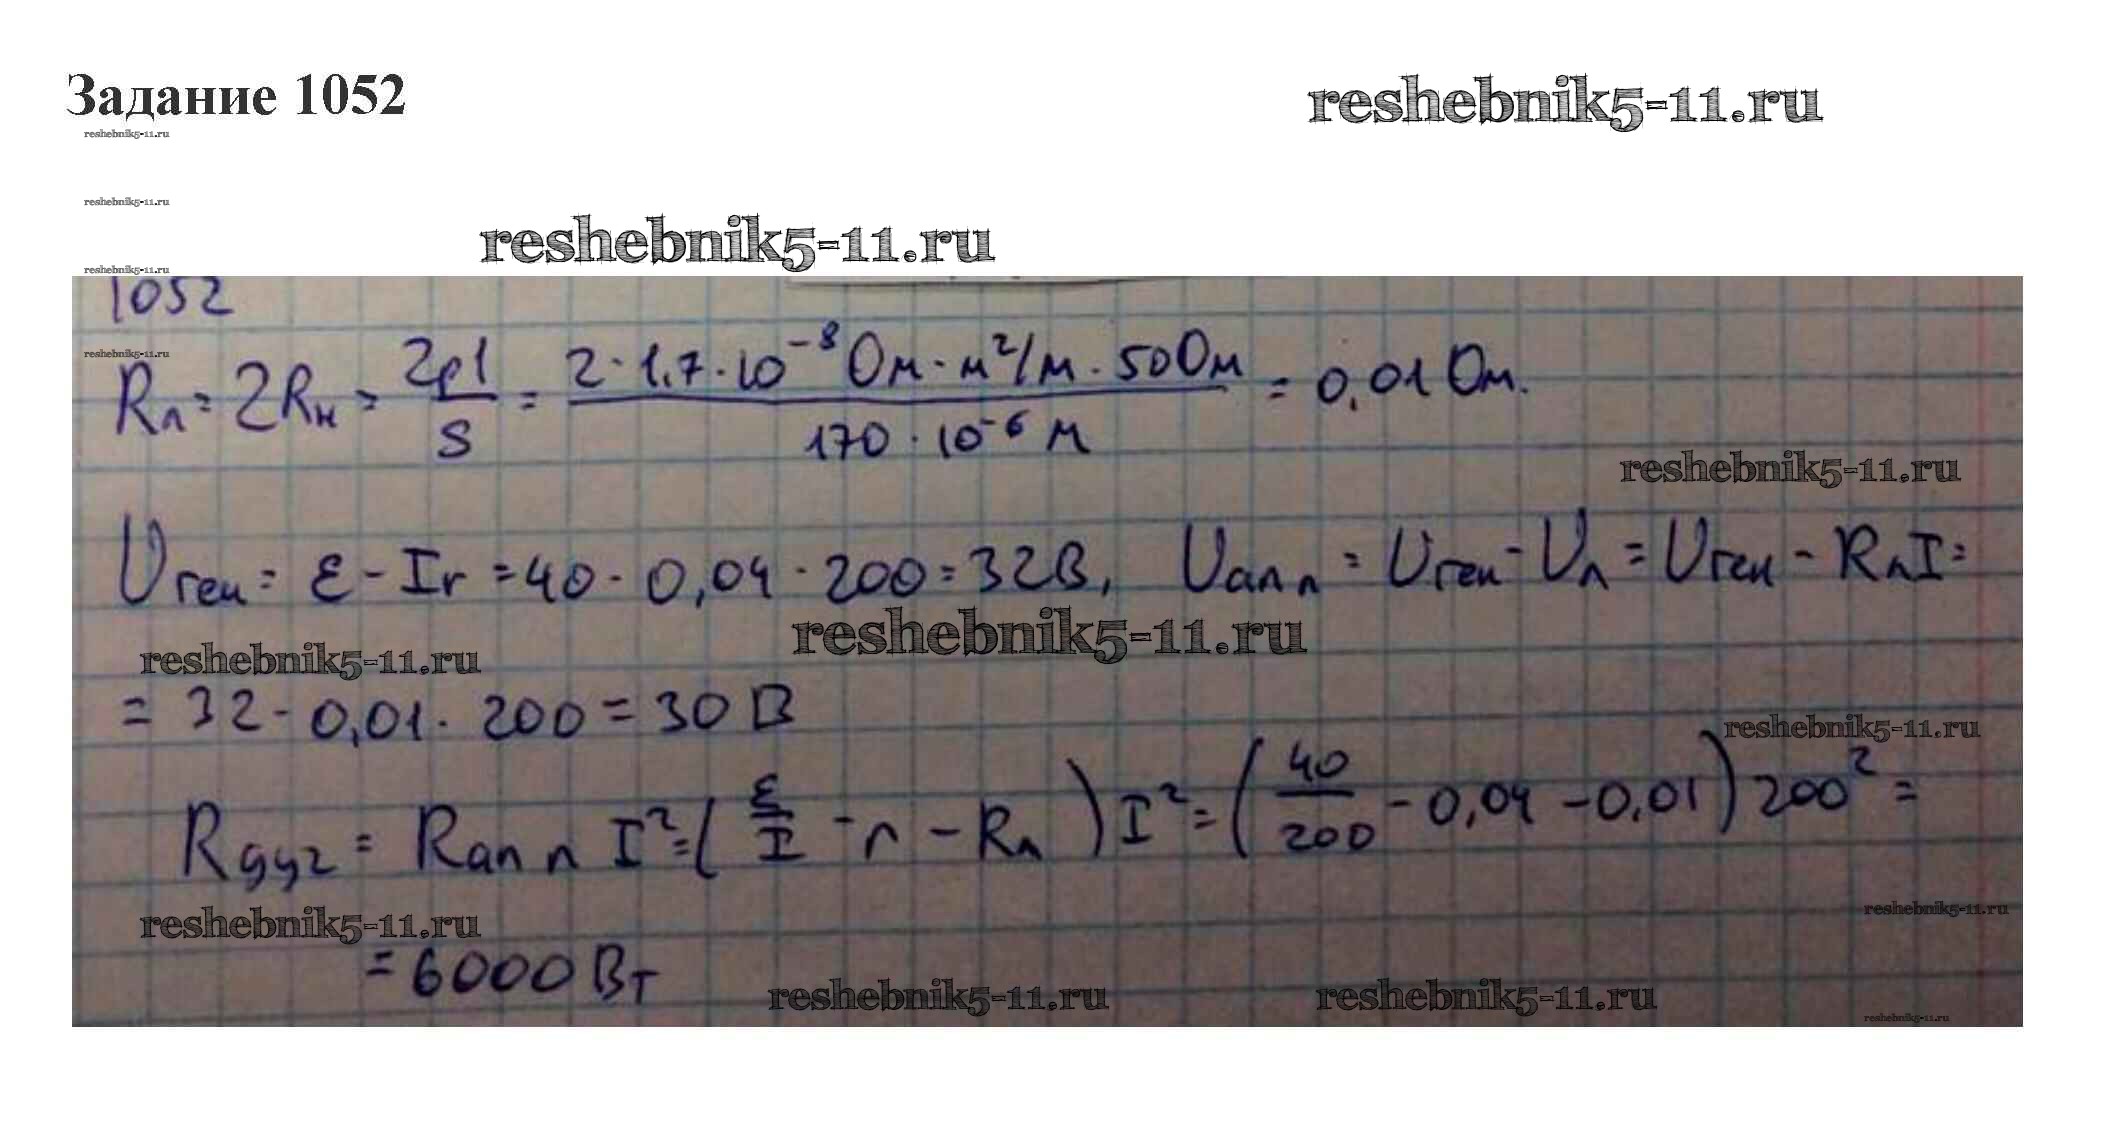 Задание 1052
reshebnik5-11.ru
reshebnik5-11.ru
reshebnik5-11.ru
reshebnik5-11.ru
reshebnik5-11.ru
1052
reshebnik5-11.ru
Rл = 2Rн = 2ρl/S = 2·1,7·10⁻⁸ Ом·м²/м·50Ом / 170·10⁻⁶ м = 0,01 Ом.
reshebnik5-11.ru
Uген = ε - Ir = 40 - 0,04 · 200 = 32В, Uапп = Uген - Uл = Uген - RлI =
reshebnik5-11.ru
reshebnik5-11.ru
= 32 - 0,01 · 200 = 30 В
reshebnik5-11.ru
Rдуг = Rапп I² = (ε/I - r - Rл) I² = (40/200 - 0,04 - 0,01) 200² =
reshebnik5-11.ru
reshebnik5-11.ru
= 6000 Вт
reshebnik5-11.ru
reshebnik5-11.ru
reshebnik5-11.ru